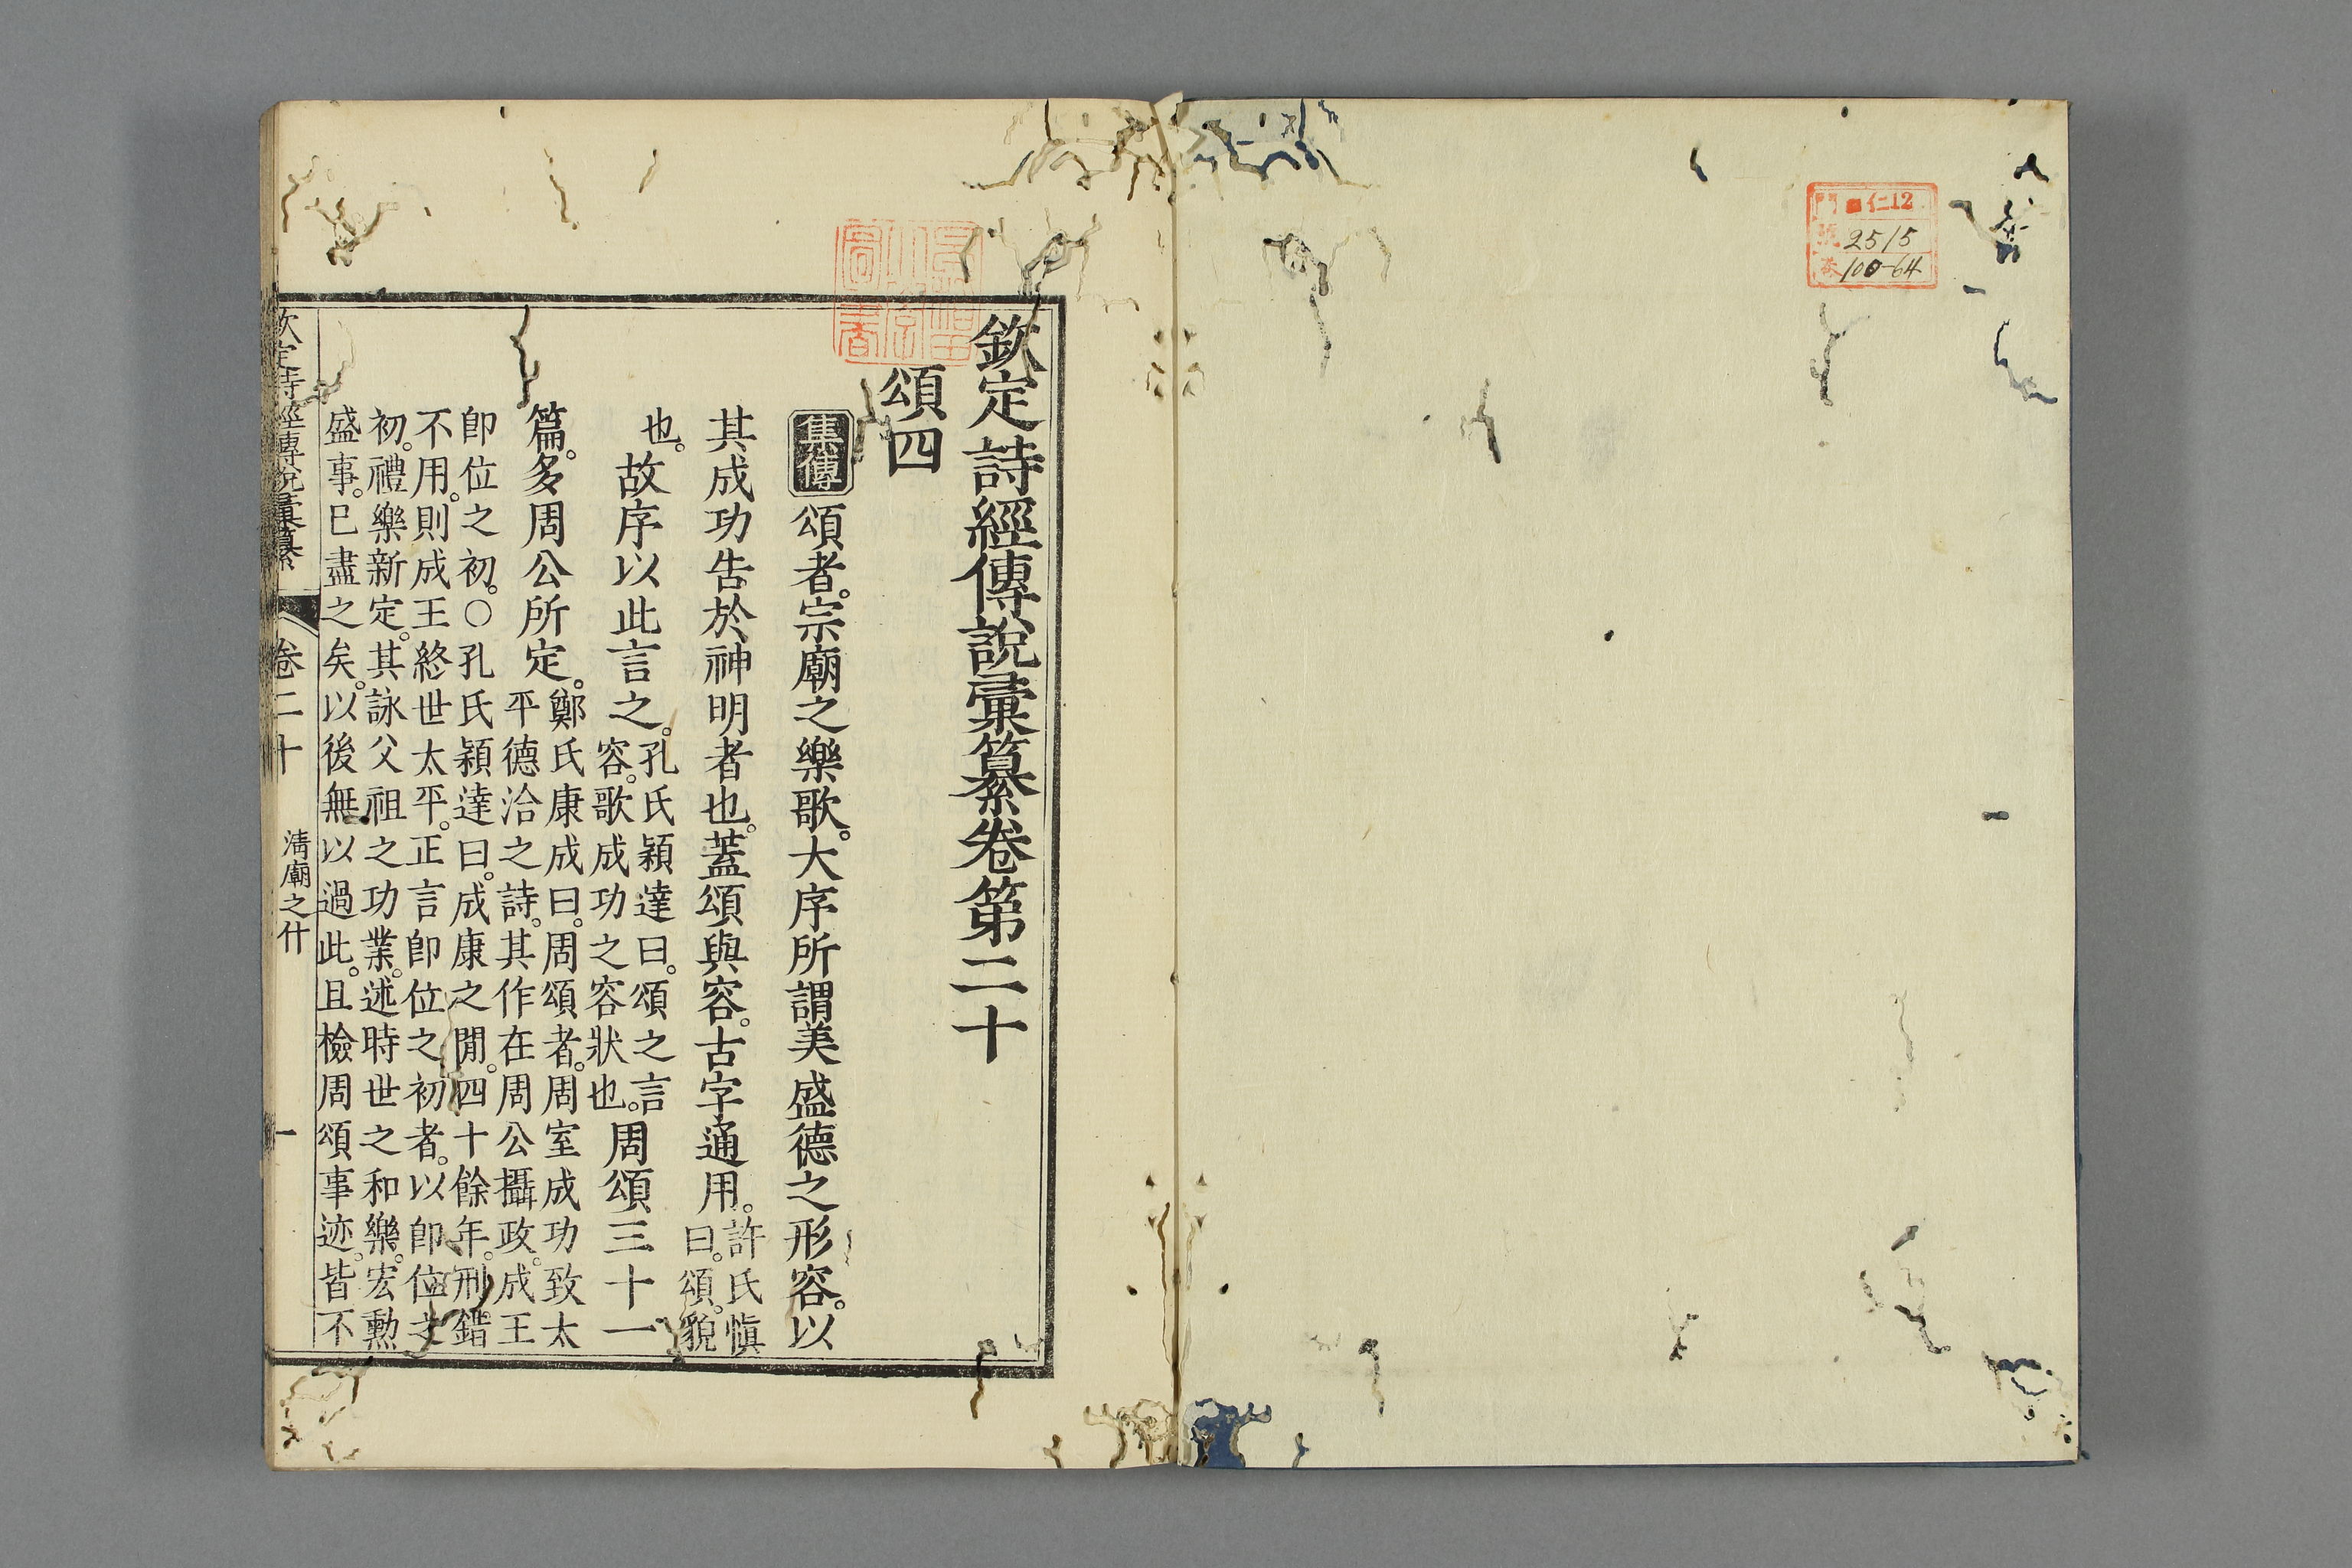 門 仁12
號 2515
卷 100-64
早稻田大學圖書
欽定詩經傳說彙纂卷第二十
頌四
集傳 頌者。宗廟之樂歌。大序所謂美盛德之形容。以
其成功告於神明者也。蓋頌與容。古字通用。許氏愼
曰。頌。貌
也。故序以此言之。孔氏穎達曰。頌之言
容。歌成功之容狀也。周頌三十一
篇。多周公所定。鄭氏康成曰。周頌者。周室成功致太
平德洽之詩。其作在周公攝政。成王
卽位之初。○孔氏穎達曰。成康之閒。四十餘年。刑錯
不用。則成王終世太平。正言卽位之初者。以卽位之
初。禮樂新定。其詠父祖之功業。述時世之和樂。宏勳
盛事。已盡之矣。以後無以過此。且檢周頌事迹。皆不
欽定詩經傳說彙纂 卷二十 淸廟之什 一